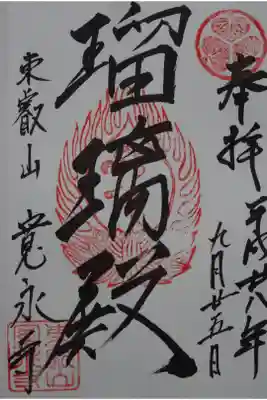 奉拝
平成廿八年
九月廿五日
瑠璃殿
東叡山
寛永寺